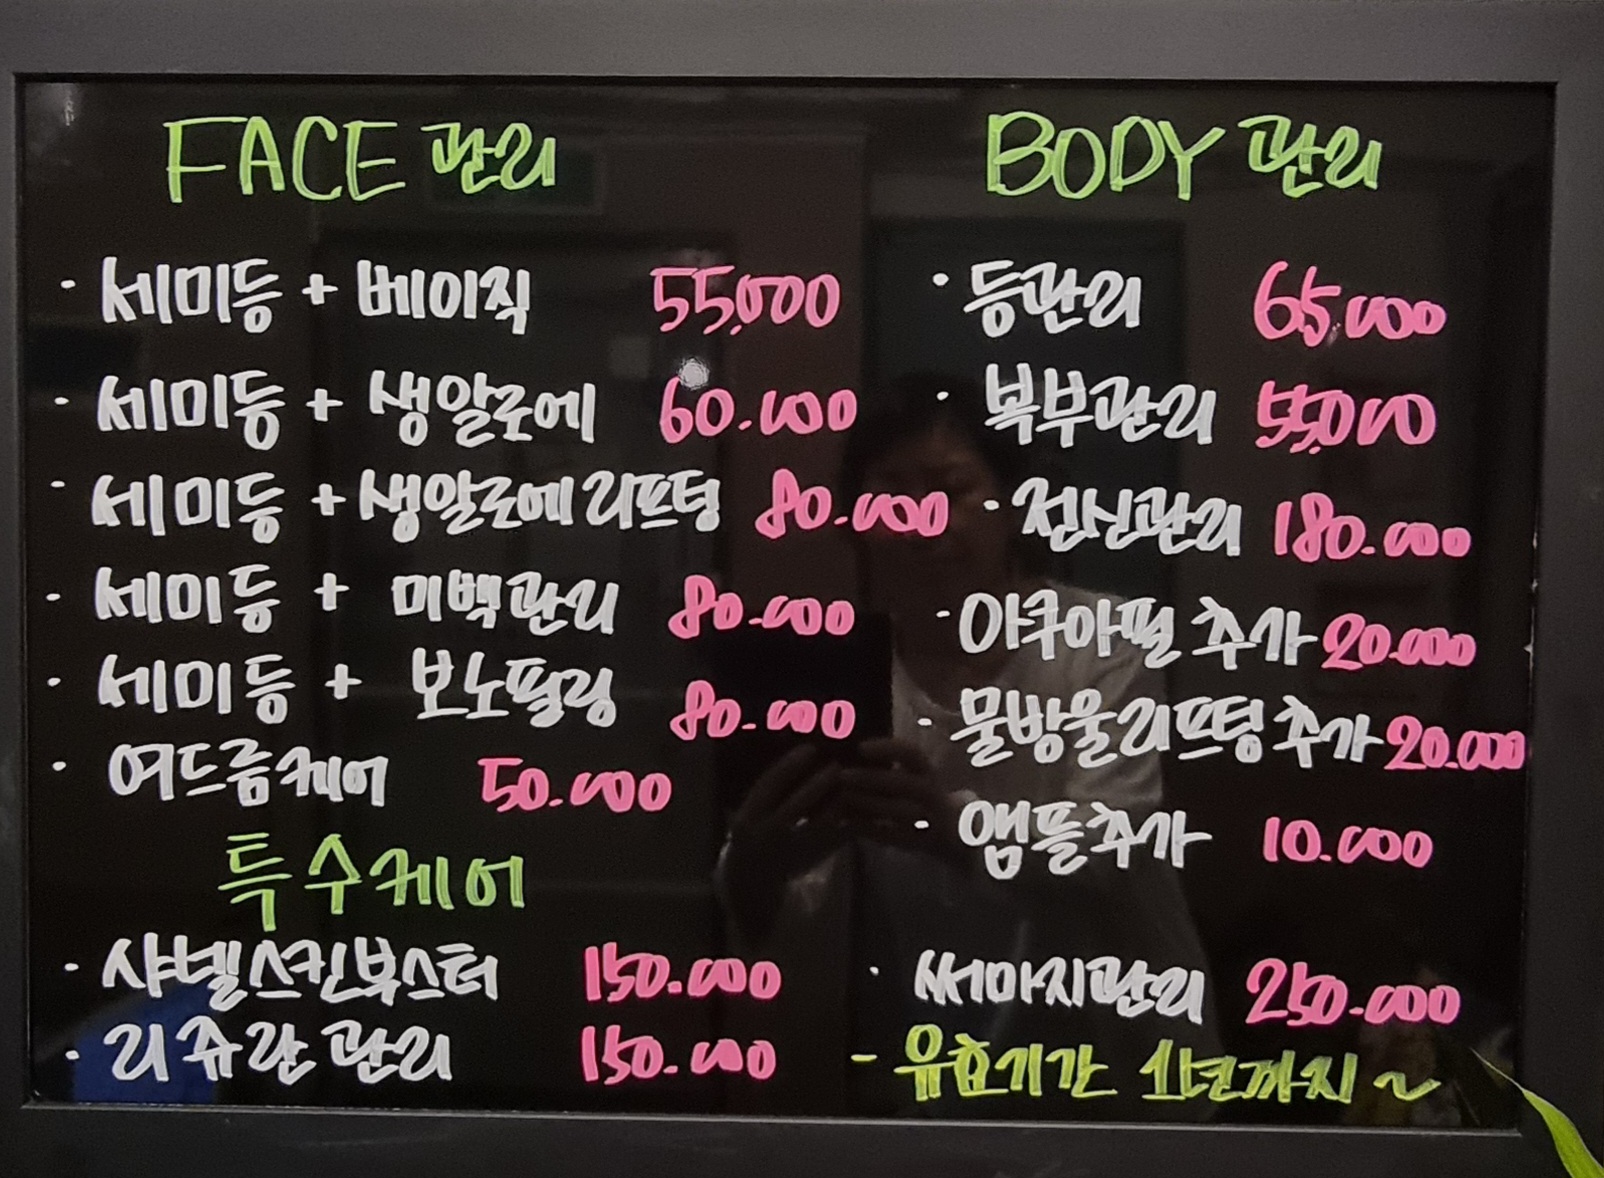 FACE 관리
· 세미등 + 베이직 55,000
· 세미등 + 생알로에 60.000
· 세미등 + 생알로에리프팅 80.000
· 세미등 + 미백관리 80.000
· 세미등 + 보노필링 80.000
· 여드름케어 50.000
특수케어
· 샤넬스킨부스터 150.000
· 리쥬란관리 150.000
BODY 관리
· 등관리 65,000
· 복부관리 55,000
· 전신관리 180.000
· 아쿠아필 추가 20.000
· 물방울리프팅 추가 20.000
· 앰플추가 10.000
· 써마지관리 250.000
- 유효기간 1년까지 ~